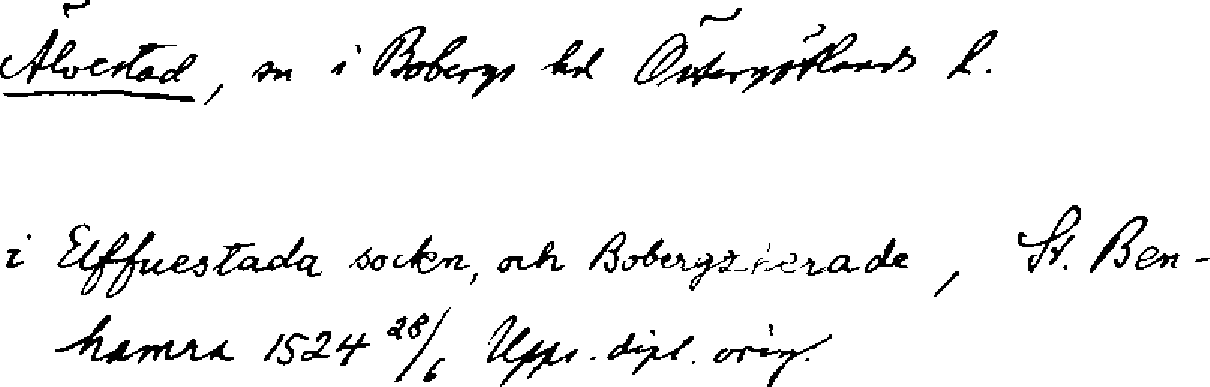 Älvestad, sn i Bobergs hd Östergötlands l.
i Elffuestada socken, och Bobergsherade, St. Ben-
hamra 1524 28/6 Upps. dipl. orig.